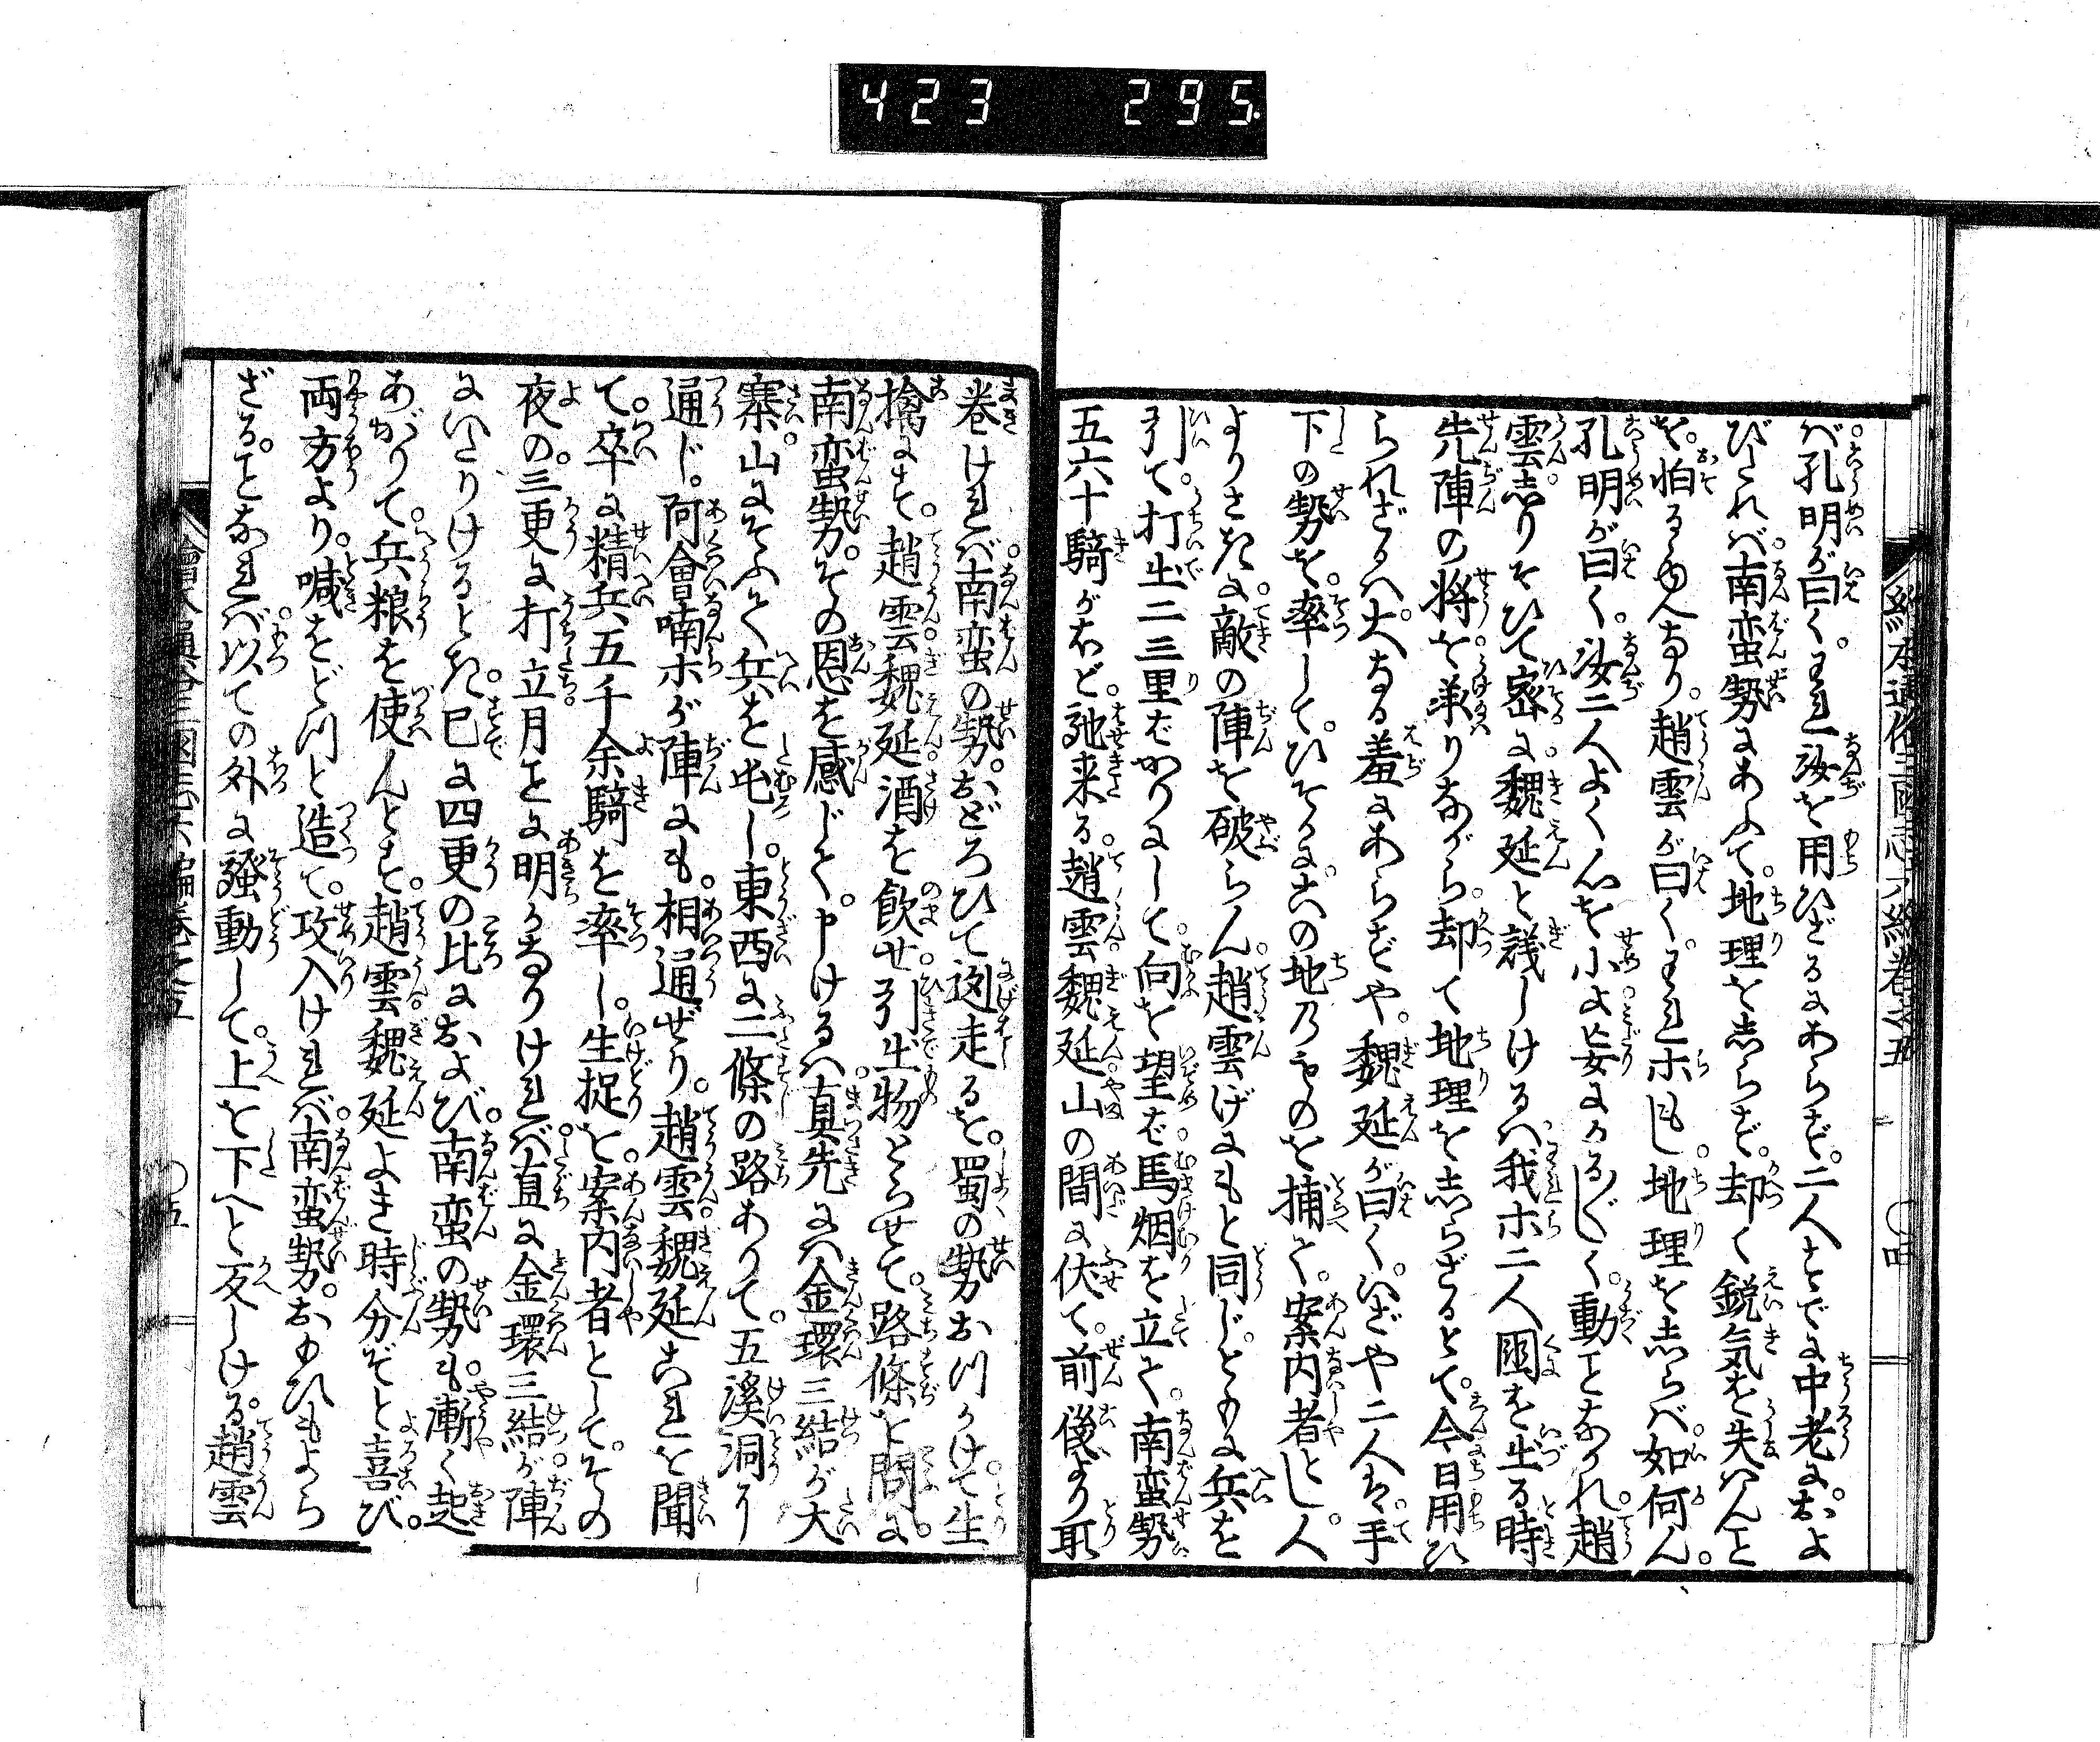 423 295
繪本通俗三國志六編巻之五 ○四
バ孔明が曰く。われ汝を用ひざるにあらず。二人すでに中老におよ
びたれバ。南蛮勢にあふて。地理をしらず。却て鋭気を失ハんこと
を。怕るゝゆへなり。趙雲が曰く。われホもし。地理をしらバ。如何ん。
孔明が曰く。汝二人よく心を小よ。妄にかるがるしく。動ことなかれ。趙
雲しりぞひて密に。魏延と議しけるハ我ホ二人。国を出る時
先陣の将を。承りながら。却て地理をしらざるとて。今日用ひ
られざるハ。大なる羞にあらずや。魏延が曰く。いざや二人。手
下の勢を。率して。ひそかに。この地のものを捕て。案内者とし。人
よりさきに。敵の陣を破らん。趙雲げにもと同じ。ともに兵を
引て。打出二三里ばかりにして。向を望ば。馬烟を立て。南蛮勢
五六十騎がほど。馳来る。趙雲。魏延。山の間に伏て。前後より取
巻けれバ。南蛮の勢。おどろひて逃走るを。蜀の勢おつかけて。生
擒にす。趙雲。魏延。酒を飲せ。引出物とらせて。路條を問に。
南蛮勢。その恩を感じて。申けるハ。真先にハ金環三結が大
寨。山にそふて兵を屯し。東西に二條の路ありて。五溪洞に
通じ。阿會喃ホが陣にも。相通ぜり。趙雲。魏延これを聞
て。卒に精兵五千余騎を率し。生捉を。案内者として。その
夜の。三更に打立。月ことに明かなりけれバ。直に金環三結が陣
にいたりけるとき。已に四更の比におよび。南蛮の勢も。漸く起
あがりて。兵粮を使んとす。趙雲。魏延よき時分ぞと喜び。
両方より。喊をどつと造て。攻入けれバ。南蛮勢。おもひもよら
ざる。ことなれバ。以ての外に騒動して。上を下へと反しける。趙雲
繪本通俗三國志六編巻之五 ○五